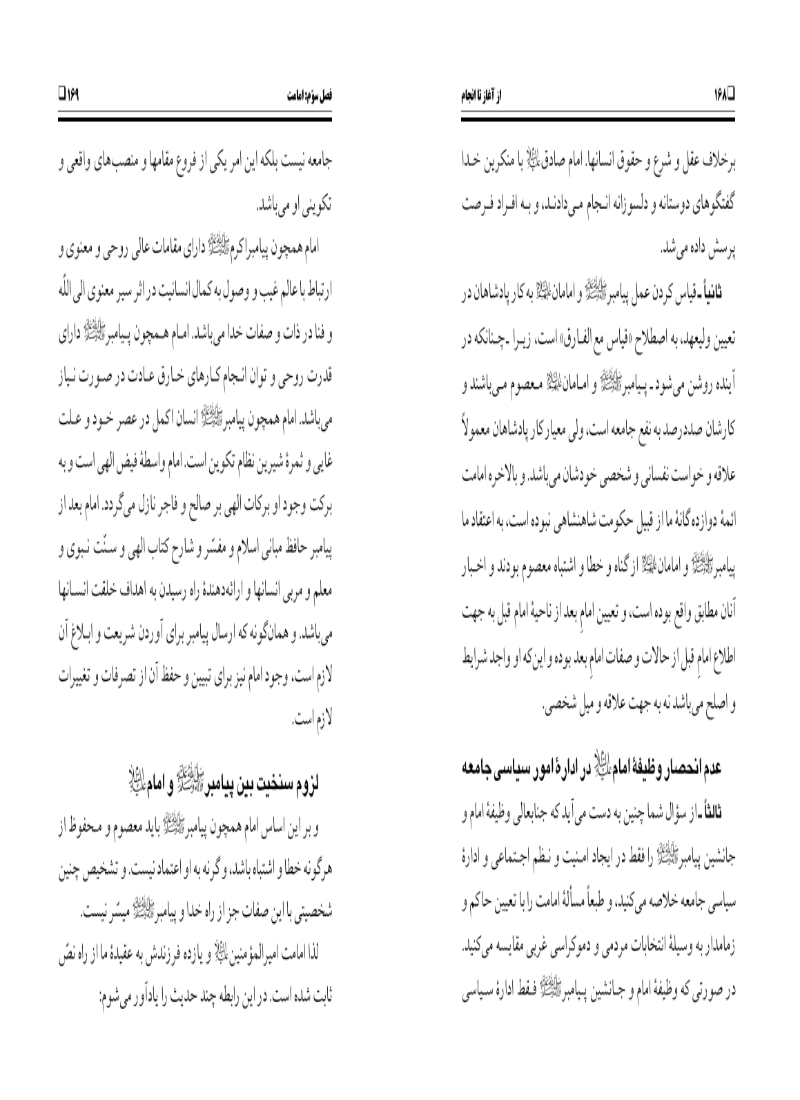 ۱۶۸ از آغاز تا انجام
برخلاف عقل و شرع و حقوق انسانها. امام صادق علیه‌السلام با منکرین خدا
گفتگوهای دوستانه و دلسوزانه انجام می‌دادند، و به افراد فرصت
پرسش داده می‌شد.
ثانیاً ـ قیاس کردن عمل پیامبر ﷺ و امامان علیهم‌السلام به کار پادشاهان در
تعیین ولیعهد، به اصطلاح «قیاس مع الفارق» است، زیرا ـ چنانکه در
آینده روشن می‌شود ـ پیامبر ﷺ و امامان علیهم‌السلام معصوم می‌باشند و
کارشان صددرصد به نفع جامعه است، ولی معیار کار پادشاهان معمولاً
علاقه و خواست نفسانی و شخصی خودشان می‌باشد. و بالاخره امامت
ائمهٔ دوازده‌گانهٔ ما از قبیل حکومت شاهنشاهی نبوده است، به اعتقاد ما
پیامبر ﷺ و امامان علیهم‌السلام از گناه و خطا و اشتباه معصوم بودند و اخبار
آنان مطابق واقع بوده است، و تعیین امامِ بعد از ناحیهٔ امام قبل به جهت
اطلاع امامِ قبل از حالات و صفات امامِ بعد بوده و این‌که او واجد شرایط
و اصلح می‌باشد نه به جهت علاقه و میل شخصی.
عدم انحصار وظیفهٔ امام علیه‌السلام در ادارهٔ امور سیاسی جامعه
ثالثاً ـ از سؤال شما چنین به دست می‌آید که جنابعالی وظیفهٔ امام و
جانشین پیامبر ﷺ را فقط در ایجاد امنیت و نظم اجتماعی و ادارهٔ
سیاسی جامعه خلاصه می‌کنید، و طبعاً مسألهٔ امامت را با تعیین حاکم و
زمامدار به وسیلهٔ انتخابات مردمی و دموکراسی غربی مقایسه می‌کنید.
در صورتی که وظیفهٔ امام و جانشین پیامبر ﷺ فقط ادارهٔ سیاسی
فصل سوّم: امامت ۱۶۹
جامعه نیست بلکه این امر یکی از فروع مقامها و منصب‌های واقعی و
تکوینی او می‌باشد.
امام همچون پیامبراکرم ﷺ دارای مقامات عالی روحی و معنوی و
ارتباط با عالم غیب و وصول به کمال انسانیت در اثر سیر معنوی الی اللّه
و فنا در ذات و صفات خدا می‌باشد. امام همچون پیامبر ﷺ دارای
قدرت روحی و توان انجام کارهای خارق عادت در صورت نیاز
می‌باشد. امام همچون پیامبر ﷺ انسان اکمل در عصر خود و علت
غایی و ثمرهٔ شیرین نظام تکوین است. امام واسطهٔ فیض الهی است و به
برکت وجود او برکات الهی بر صالح و فاجر نازل می‌گردد. امام بعد از
پیامبر حافظ مبانی اسلام و مفسّر و شارح کتاب الهی و سنّت نبوی و
معلم و مربی انسانها و ارائه‌دهندهٔ راه رسیدن به اهداف خلقت انسانها
می‌باشد. و همان‌گونه که ارسال پیامبر برای آوردن شریعت و ابلاغ آن
لازم است، وجود امام نیز برای تبیین و حفظ آن از تصرفات و تغییرات
لازم است.
لزوم سنخیت بین پیامبر ﷺ و امام علیه‌السلام
و بر این اساس امام همچون پیامبر ﷺ باید معصوم و محفوظ از
هرگونه خطا و اشتباه باشد، وگرنه به او اعتماد نیست. و تشخیص چنین
شخصیتی با این صفات جز از راه خدا و پیامبر ﷺ میسّر نیست.
لذا امامت امیرالمؤمنین علیه‌السلام و یازده فرزندش به عقیدهٔ ما از راه نصّ
ثابت شده است. در این رابطه چند حدیث را یادآور می‌شوم: